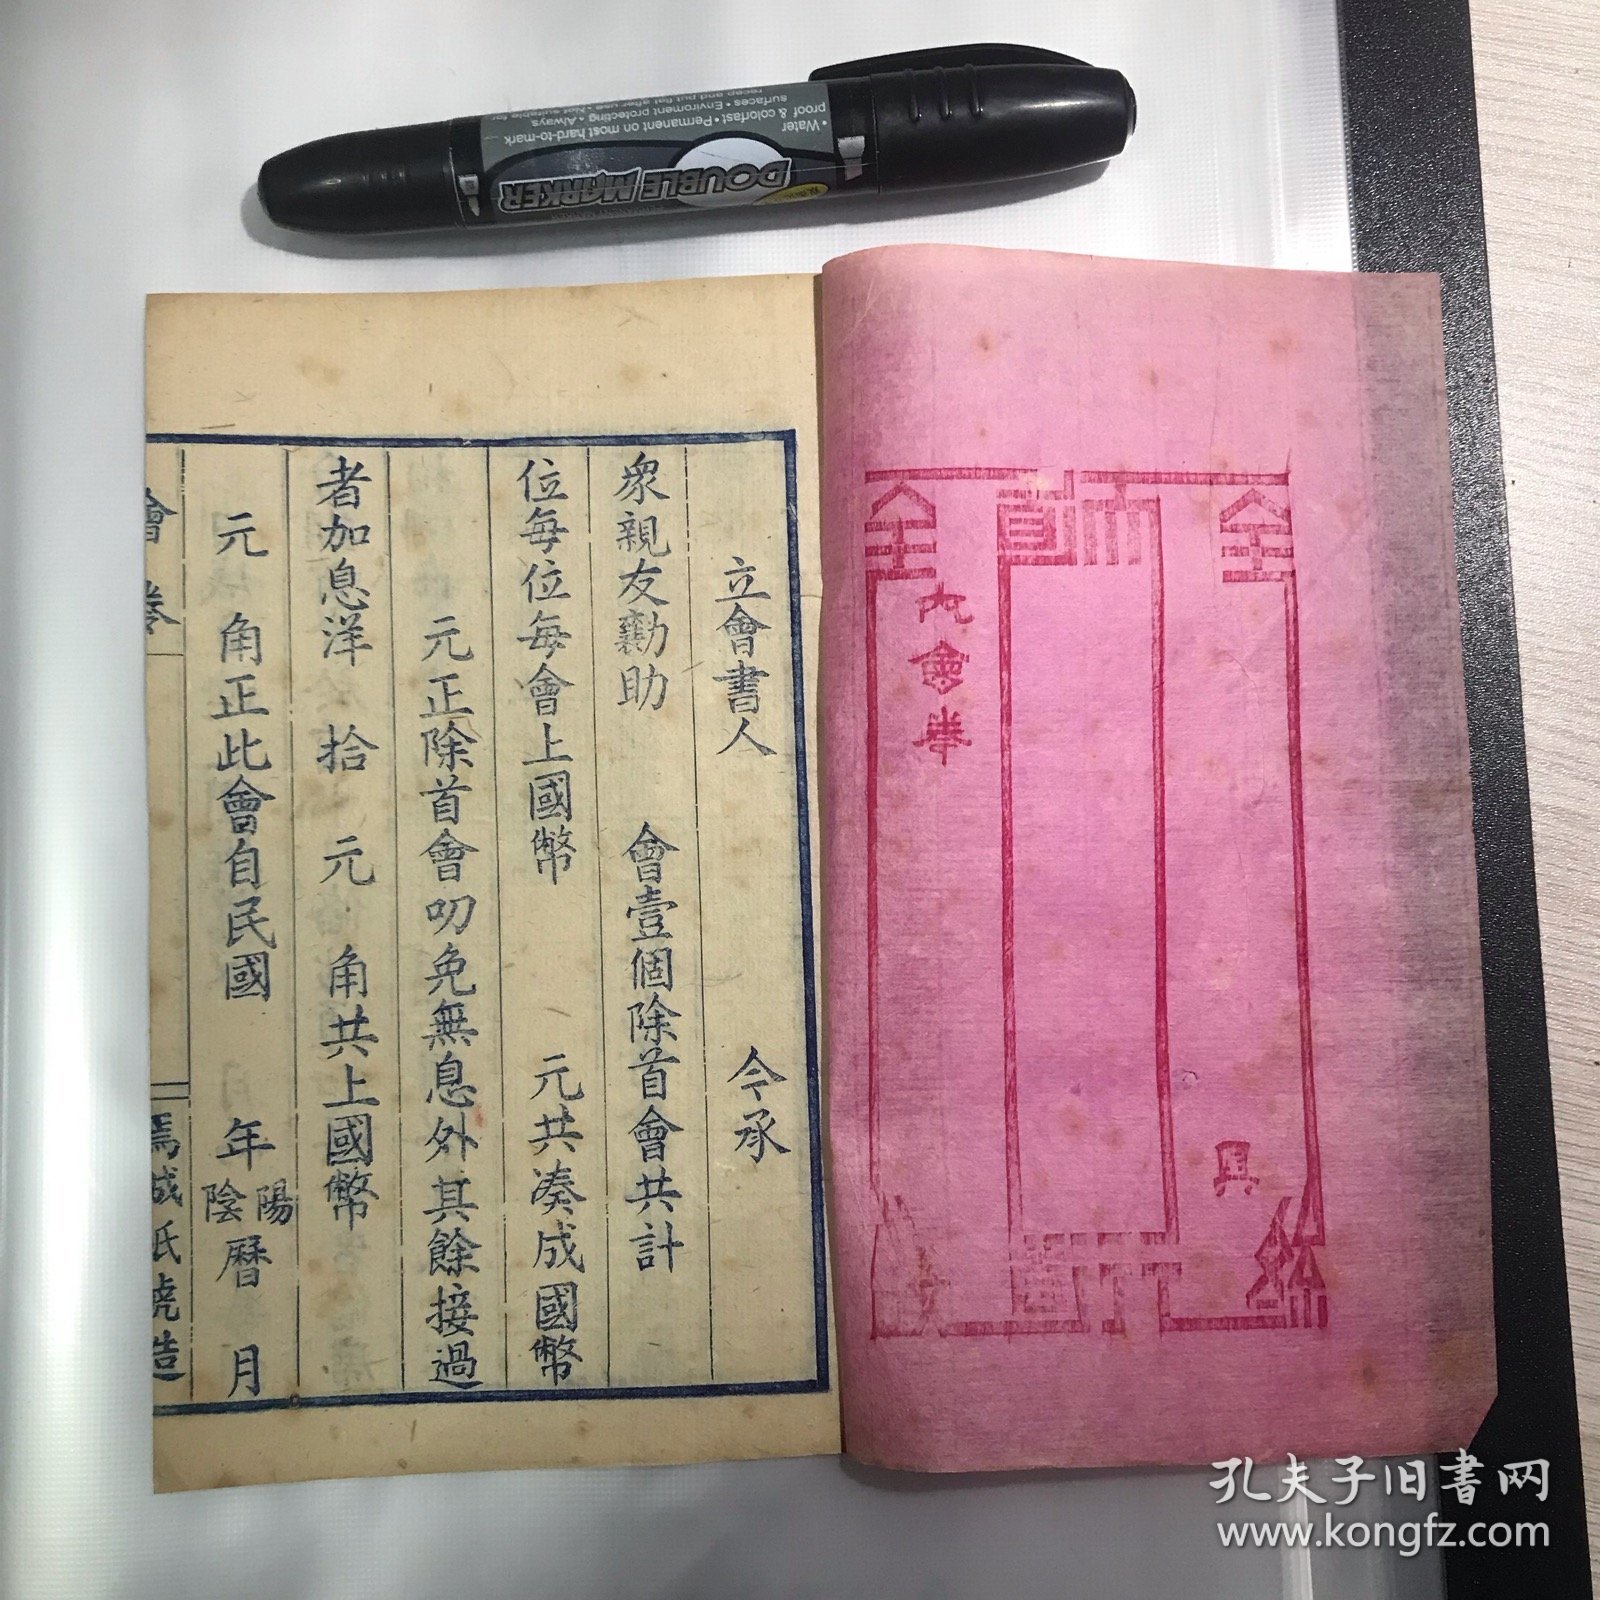 DOUBLE MARKER
• Water
proof & colorfast • Permanent on most hard-to-mark
surfaces • Enviroment protecting • Always
全
全
內會券
具
立會書人 今承
衆親友勷助 會壹個除首會共計
位每位每會上國幣 元共凑成國幣
元正除首會叨免無息外其餘接過
者加息洋 拾 元 角共上國幣
元 角正此會自民國 年陰陽曆 月
會券
禹城氏號造
孔夫子旧书网
www.kongfz.com